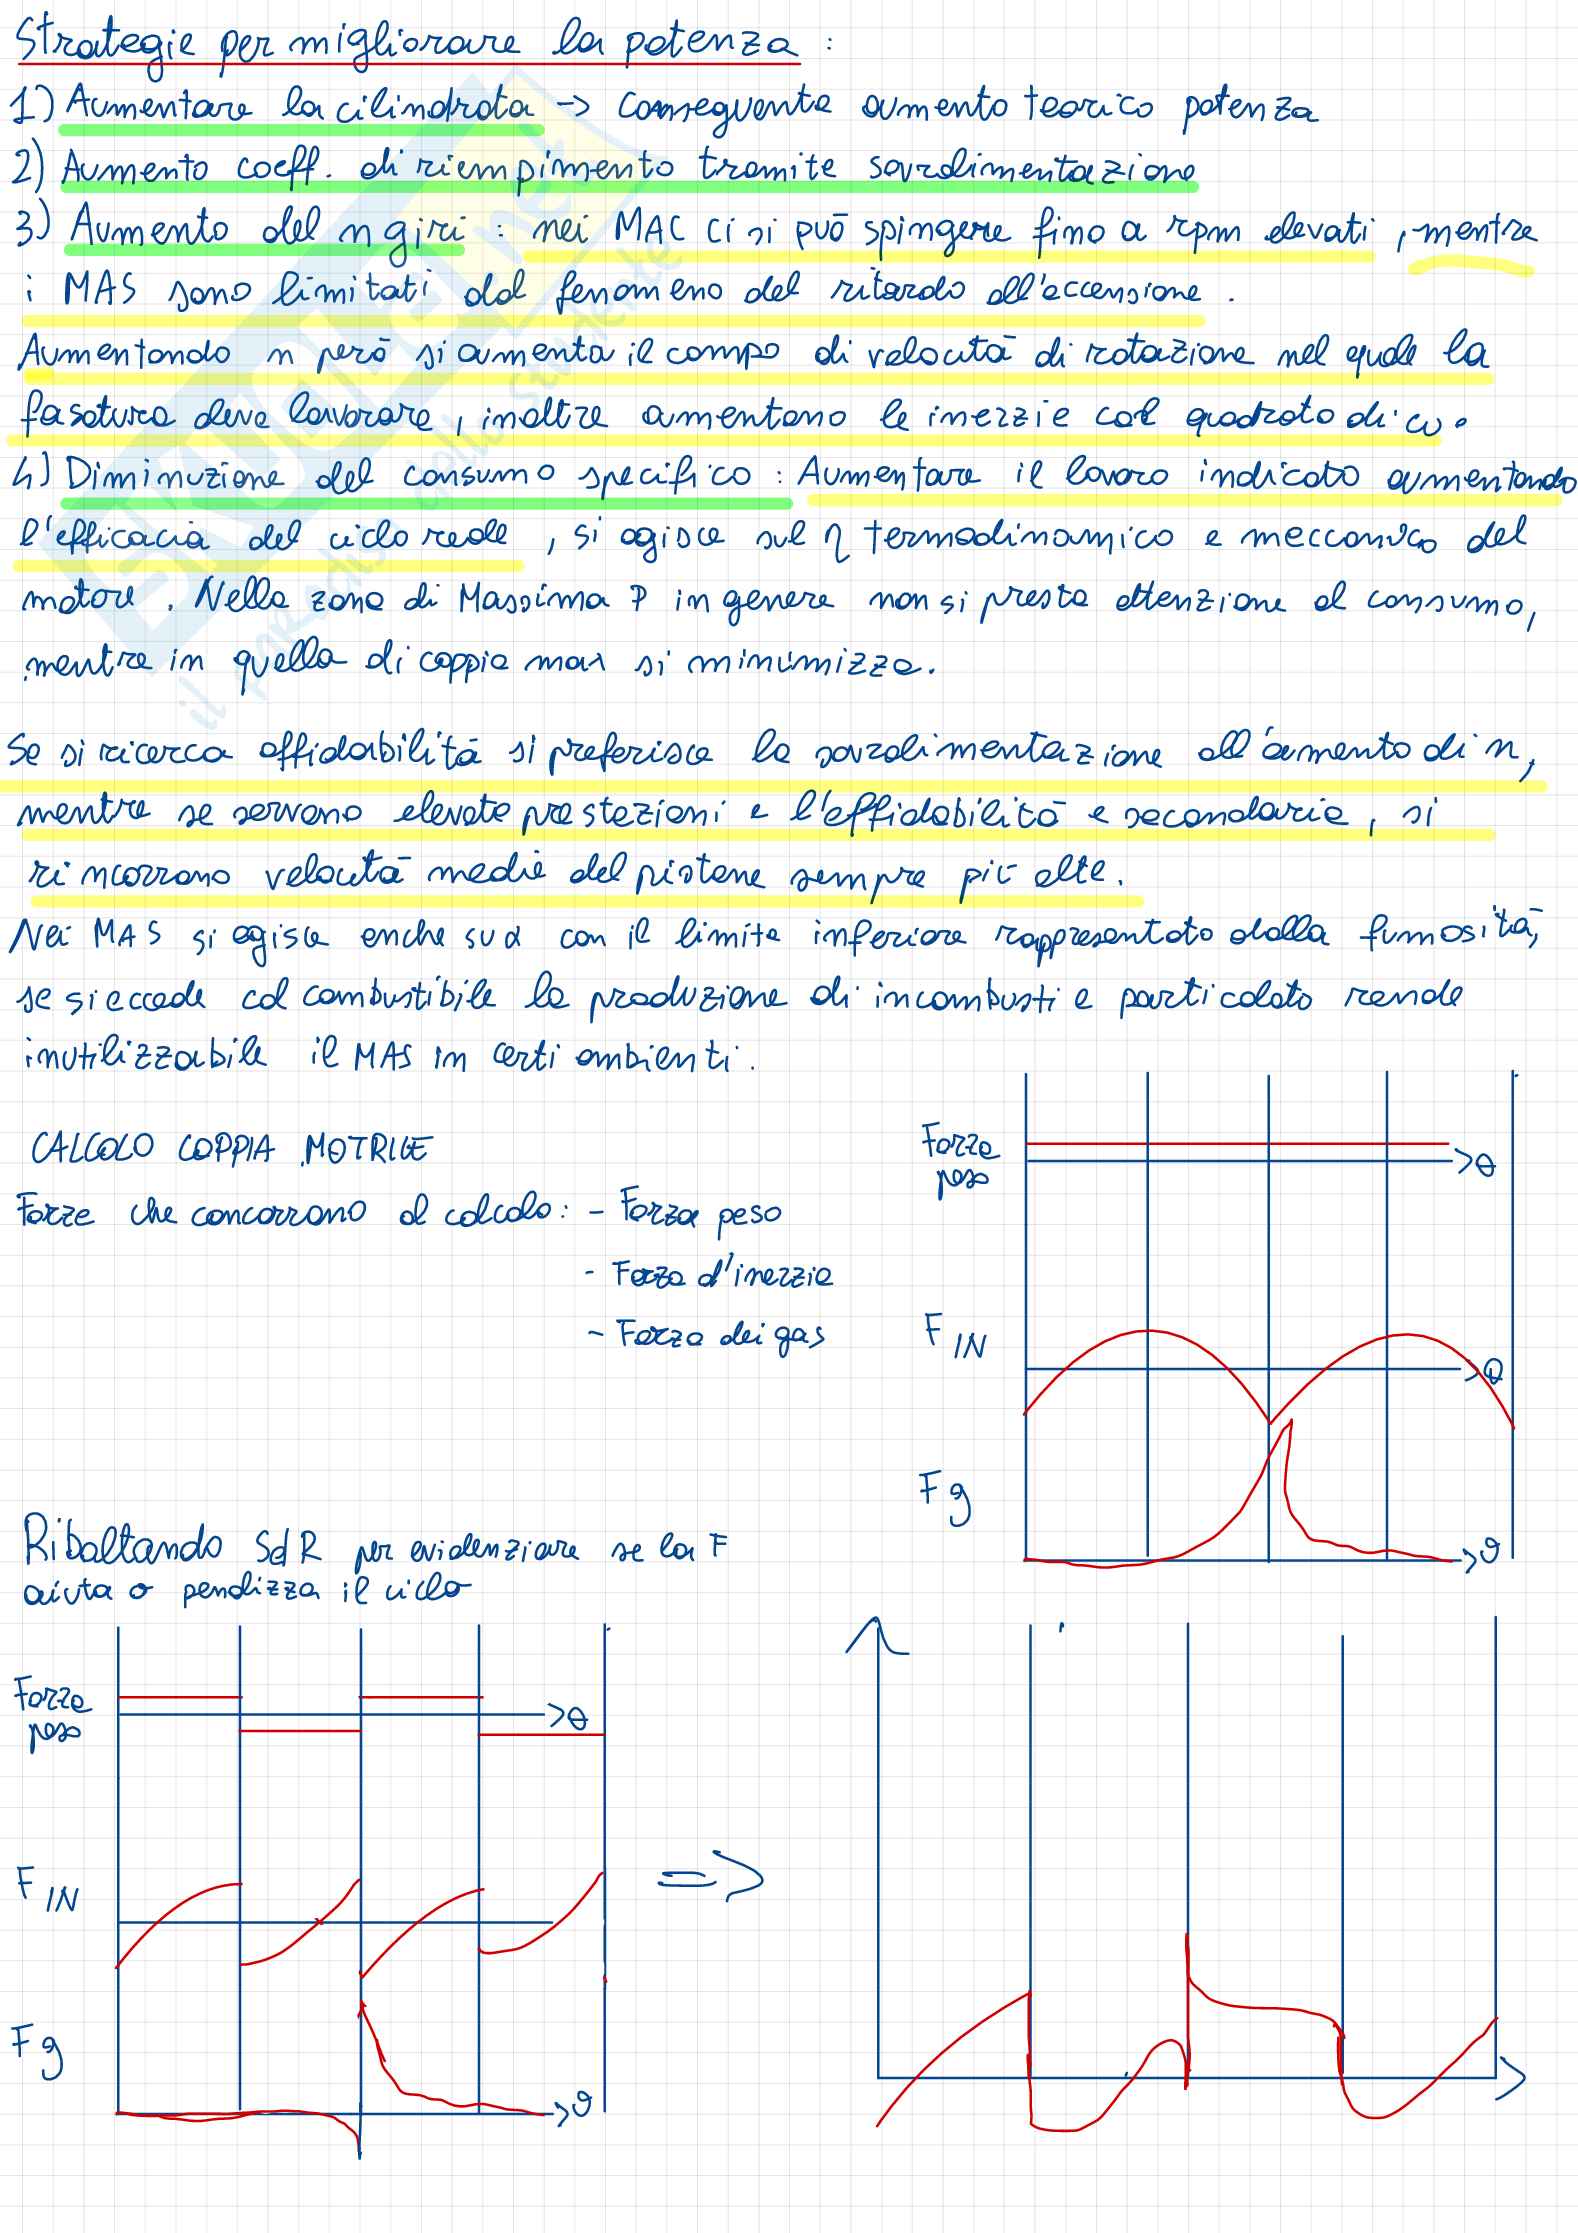 Strategie per migliorare la potenza :
1) Aumentare la cilindrata -> conseguente aumento teorico potenza
2) Aumento coeff. di riempimento tramite sovralimentazione
3) Aumento del n giri : nei MAC ci si può spingere fino a rpm elevati , mentre
i MAS sono limitati dal fenomeno del ritardo all'accensione .
Aumentando n però si aumenta il campo di velocità di rotazione nel quale la
fasatura deve lavorare , inoltre aumentano le inerzie col quadrato di ω .
4) Diminuzione del consumo specifico : Aumentare il lavoro indicato aumentando
l'efficacia del ciclo reale , si agisce sul η termodinamico e meccanico del
motore . Nella zona di Massima P in genere non si presta attenzione al consumo,
mentre in quella di coppia max si minimizza.
Se si ricerca affidabilità si preferisce la sovralimentazione all'aumento di n,
mentre se servono elevate prestazioni e l'affidabilità e secondaria, si
rincorrono velocità medie del pistone sempre più alte.
Nei MAS si agisce anche su α con il limite inferiore rappresentato dalla fumosità,
se si eccede col combustibile la produzione di incombusti e particolato rende
inutilizzabile il MAS in certi ambienti.
CALCOLO COPPIA MOTRICE
Forze che concorrono al calcolo: - Forza peso
- Forza d'inerzia
- Forza dei gas
Forza
peso
θ
F IN
θ
Fg
θ
Ribaltando SdR per evidenziare se la F
aiuta o penalizza il ciclo
Forza
peso
θ
F IN
=>
Fg
θ
il paradiso dello studente